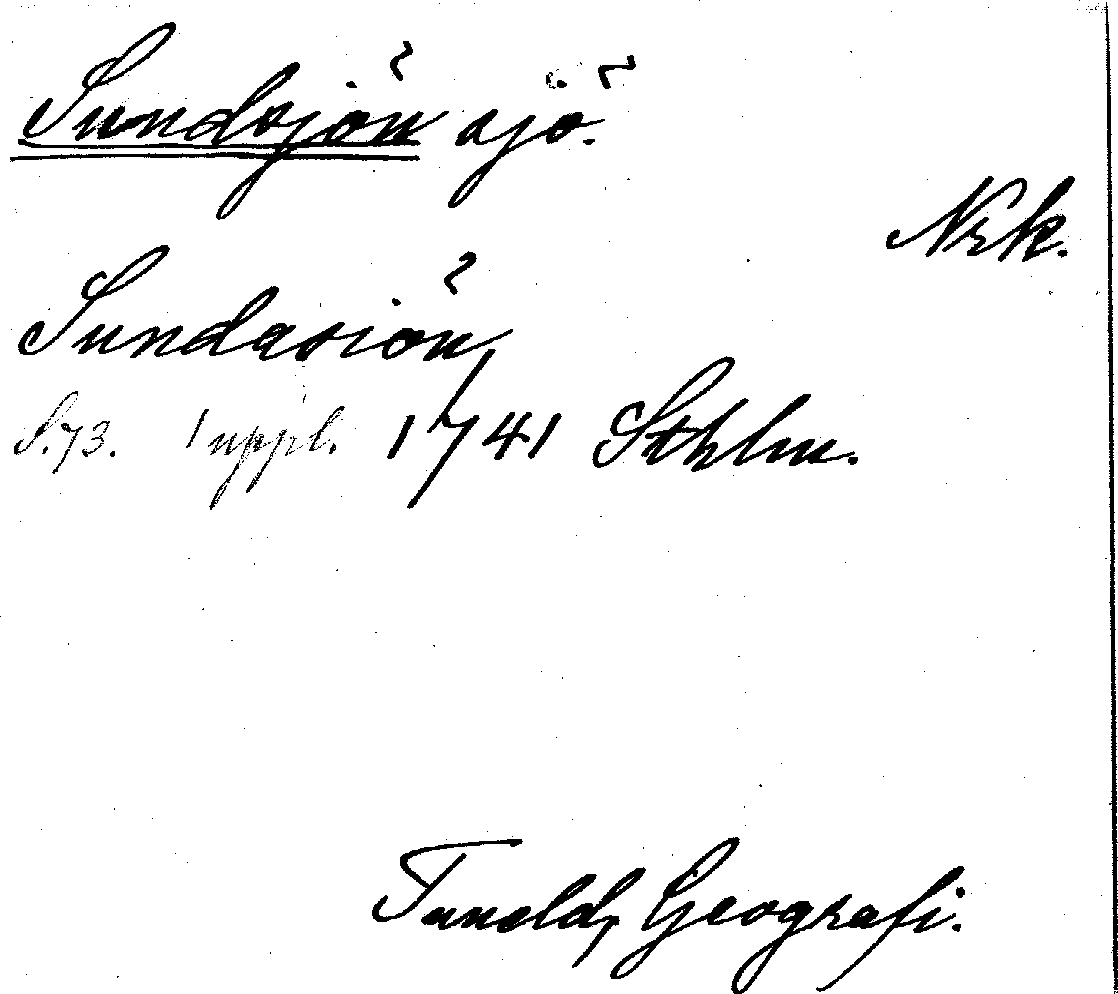 Sundsjön sjö.
Nrk.
Sundasiön,
S. 73. 1 uppl. 1741 Sthlm.
Tuneld, Geografi.